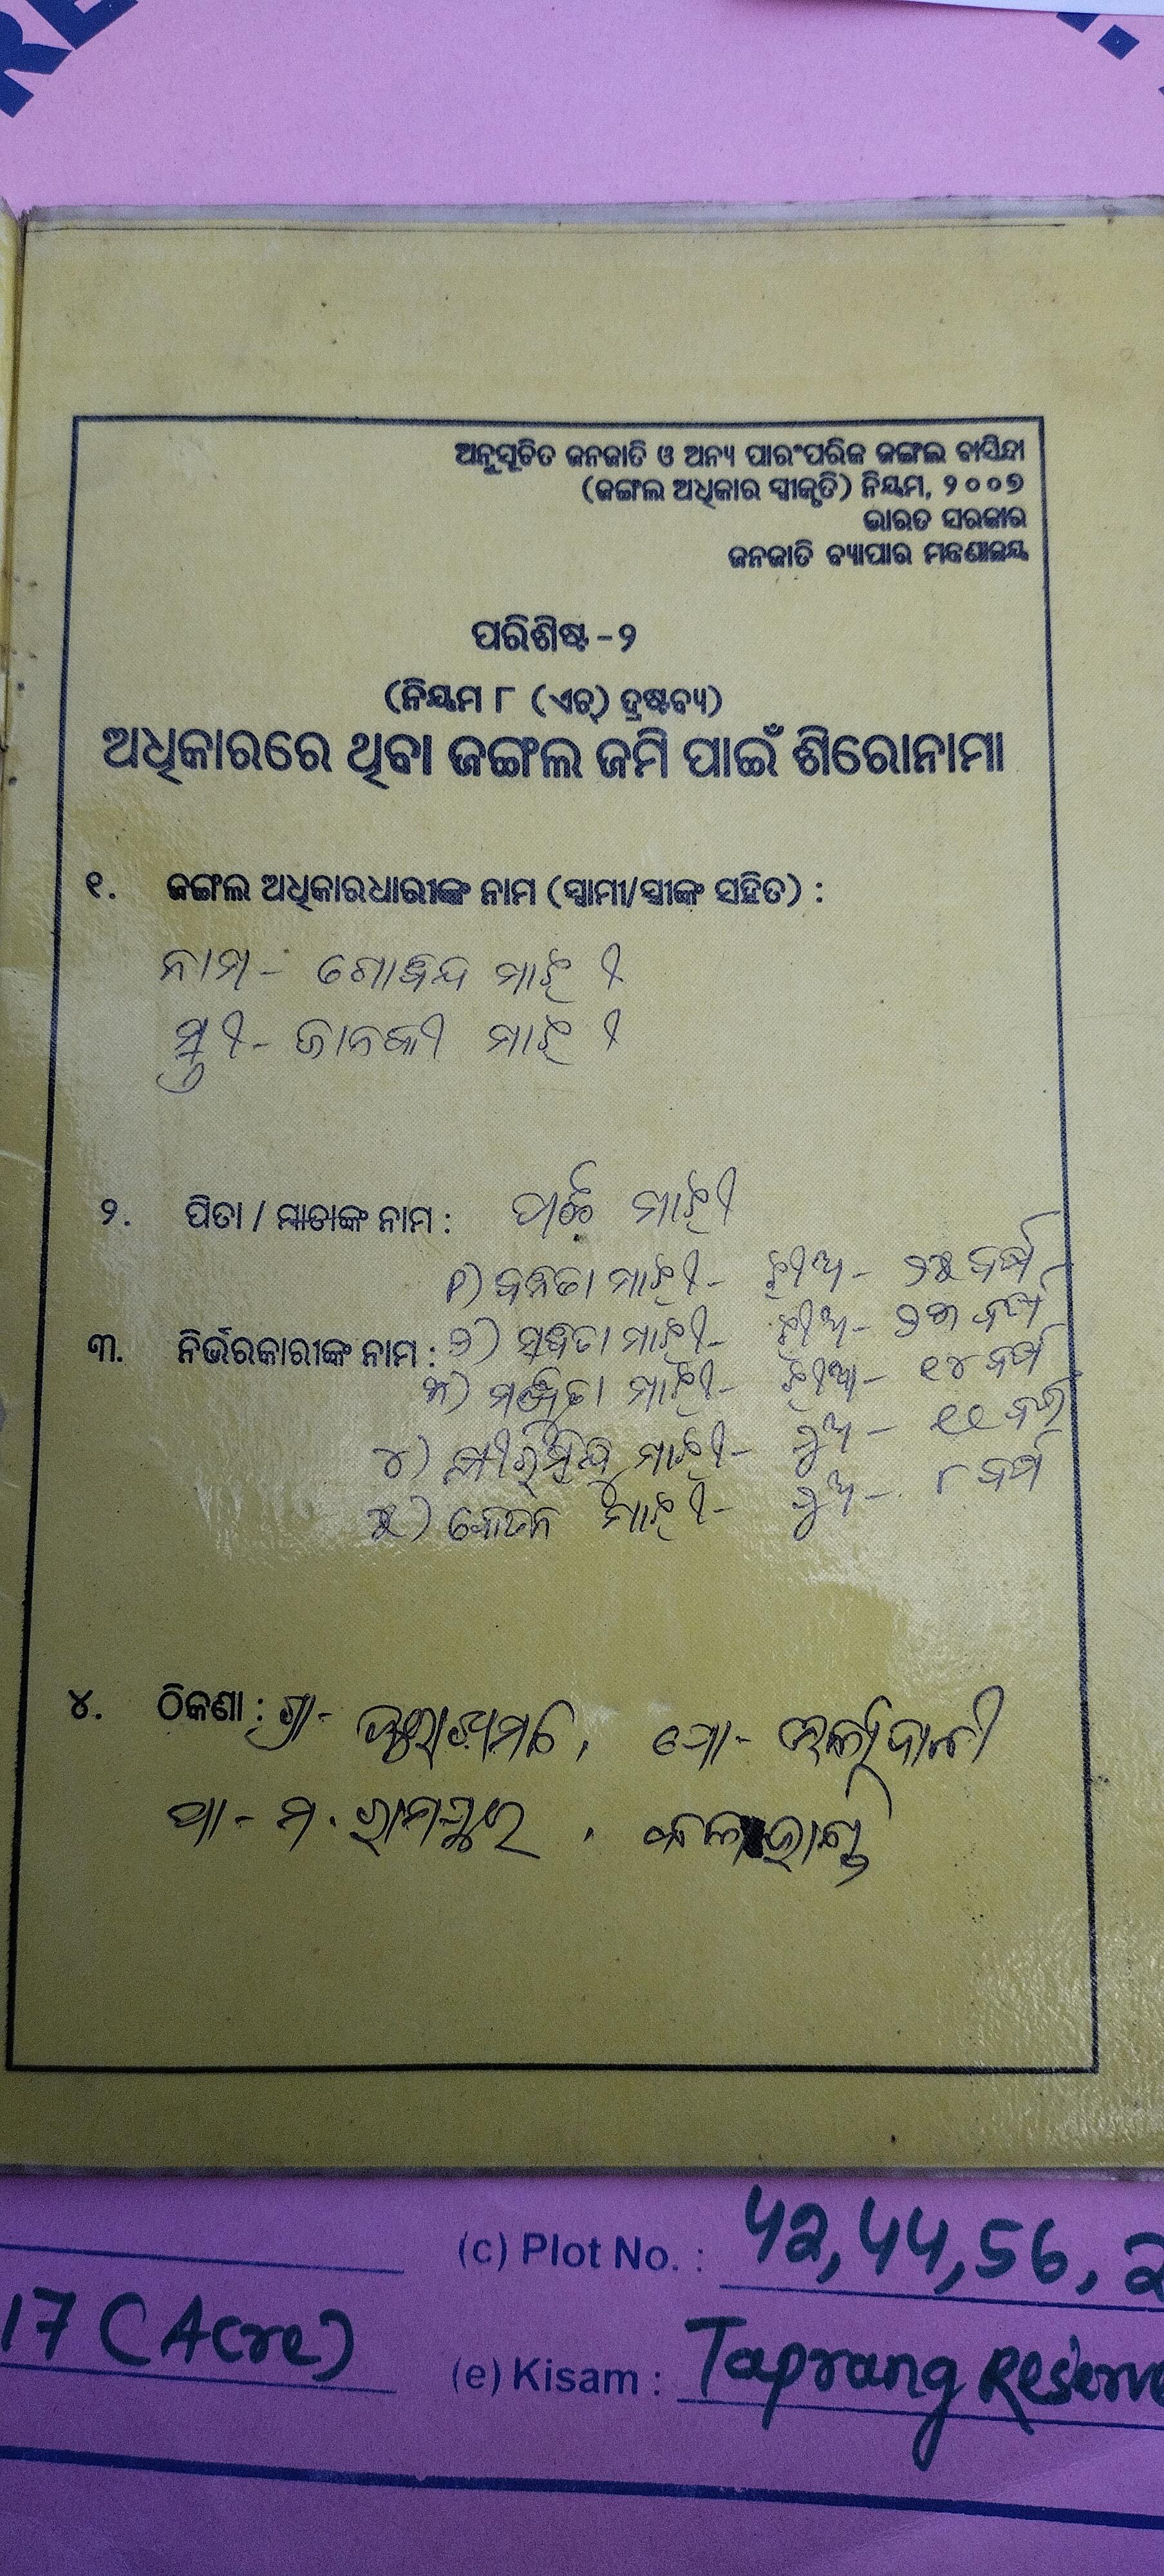 RE
ଅନୁସୂଚିତ ଜନଜାତି ଓ ଅନ୍ୟ ପାରଂପରିକ ଜଙ୍ଗଲ ବାସିନ୍ଦା
(ଜଙ୍ଗଲ ଅଧିକାର ସ୍ୱୀକୃତି) ନିୟମ, ୨୦୦୭
ଭାରତ ସରକାର
ଜନଜାତି ବ୍ୟାପାର ମନ୍ତ୍ରଣାଳୟ
ପରିଶିଷ୍ଟ -୨
(ନିୟମ ୮ (ଏଚ୍) ଦ୍ରଷ୍ଟବ୍ୟ)
ଅଧିକାରରେ ଥିବା ଜଙ୍ଗଲ ଜମି ପାଇଁ ଶିରୋନାମା
୧. ଜଙ୍ଗଲ ଅଧିକାରଧାରୀଙ୍କ ନାମ (ସ୍ୱାମୀ/ସ୍ତ୍ରୀଙ୍କ ସହିତ) :
ନାମ - ଗୋବିନ୍ଦ ମାଝୀ
ସ୍ତ୍ରୀ - ଜାନକୀ ମାଝୀ
୨. ପିତା / ମାତାଙ୍କ ନାମ : ମାଝୀ
୧) ବନିତା ମାଝୀ - ଝୀଅ - ୨୫ ବର୍ଷ
୩. ନିର୍ଭରକାରୀଙ୍କ ନାମ : ୨) ସବିତା ମାଝୀ - ଝୀଅ - ୨୩ ବର୍ଷ
୩) ମାଝୀ - ଝୀଅ - ୧୪ ବର୍ଷ
୪) କ୍ଷୀରସିନ୍ଧୁ ମାଝୀ - ପୁଅ - ୧୧ ବର୍ଷ
୫) ମାଝୀ - ପୁଅ - ୮ ବର୍ଷ
୪. ଠିକଣା : ଗ୍ରା - , ପୋ -
ଥା - ମ. ରାମପୁର ,
(c) Plot No. : 42, 44, 56, 2
17 (Acre) (e) Kisam : Taprang Reserve